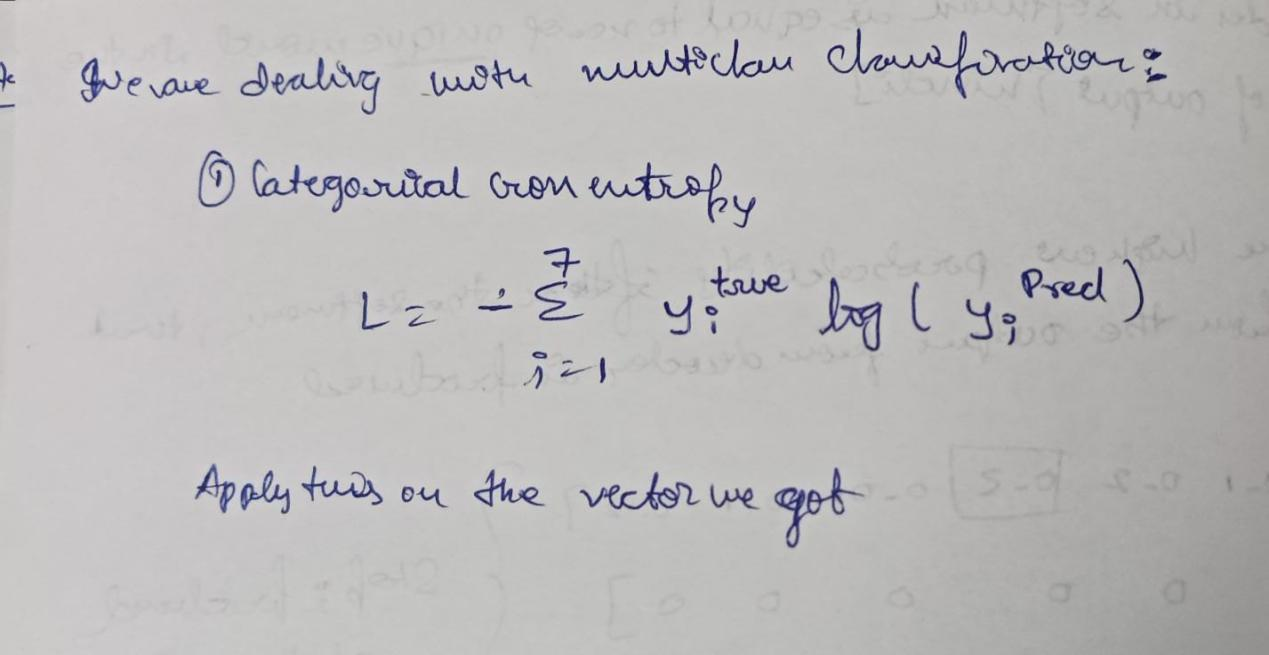 * We are dealing with multiclass classification:
① Categorical cross entropy
L = - Σ_{i=1}^{7} y_i^{true} log ( y_i^{Pred} )
Apply this on the vector we got